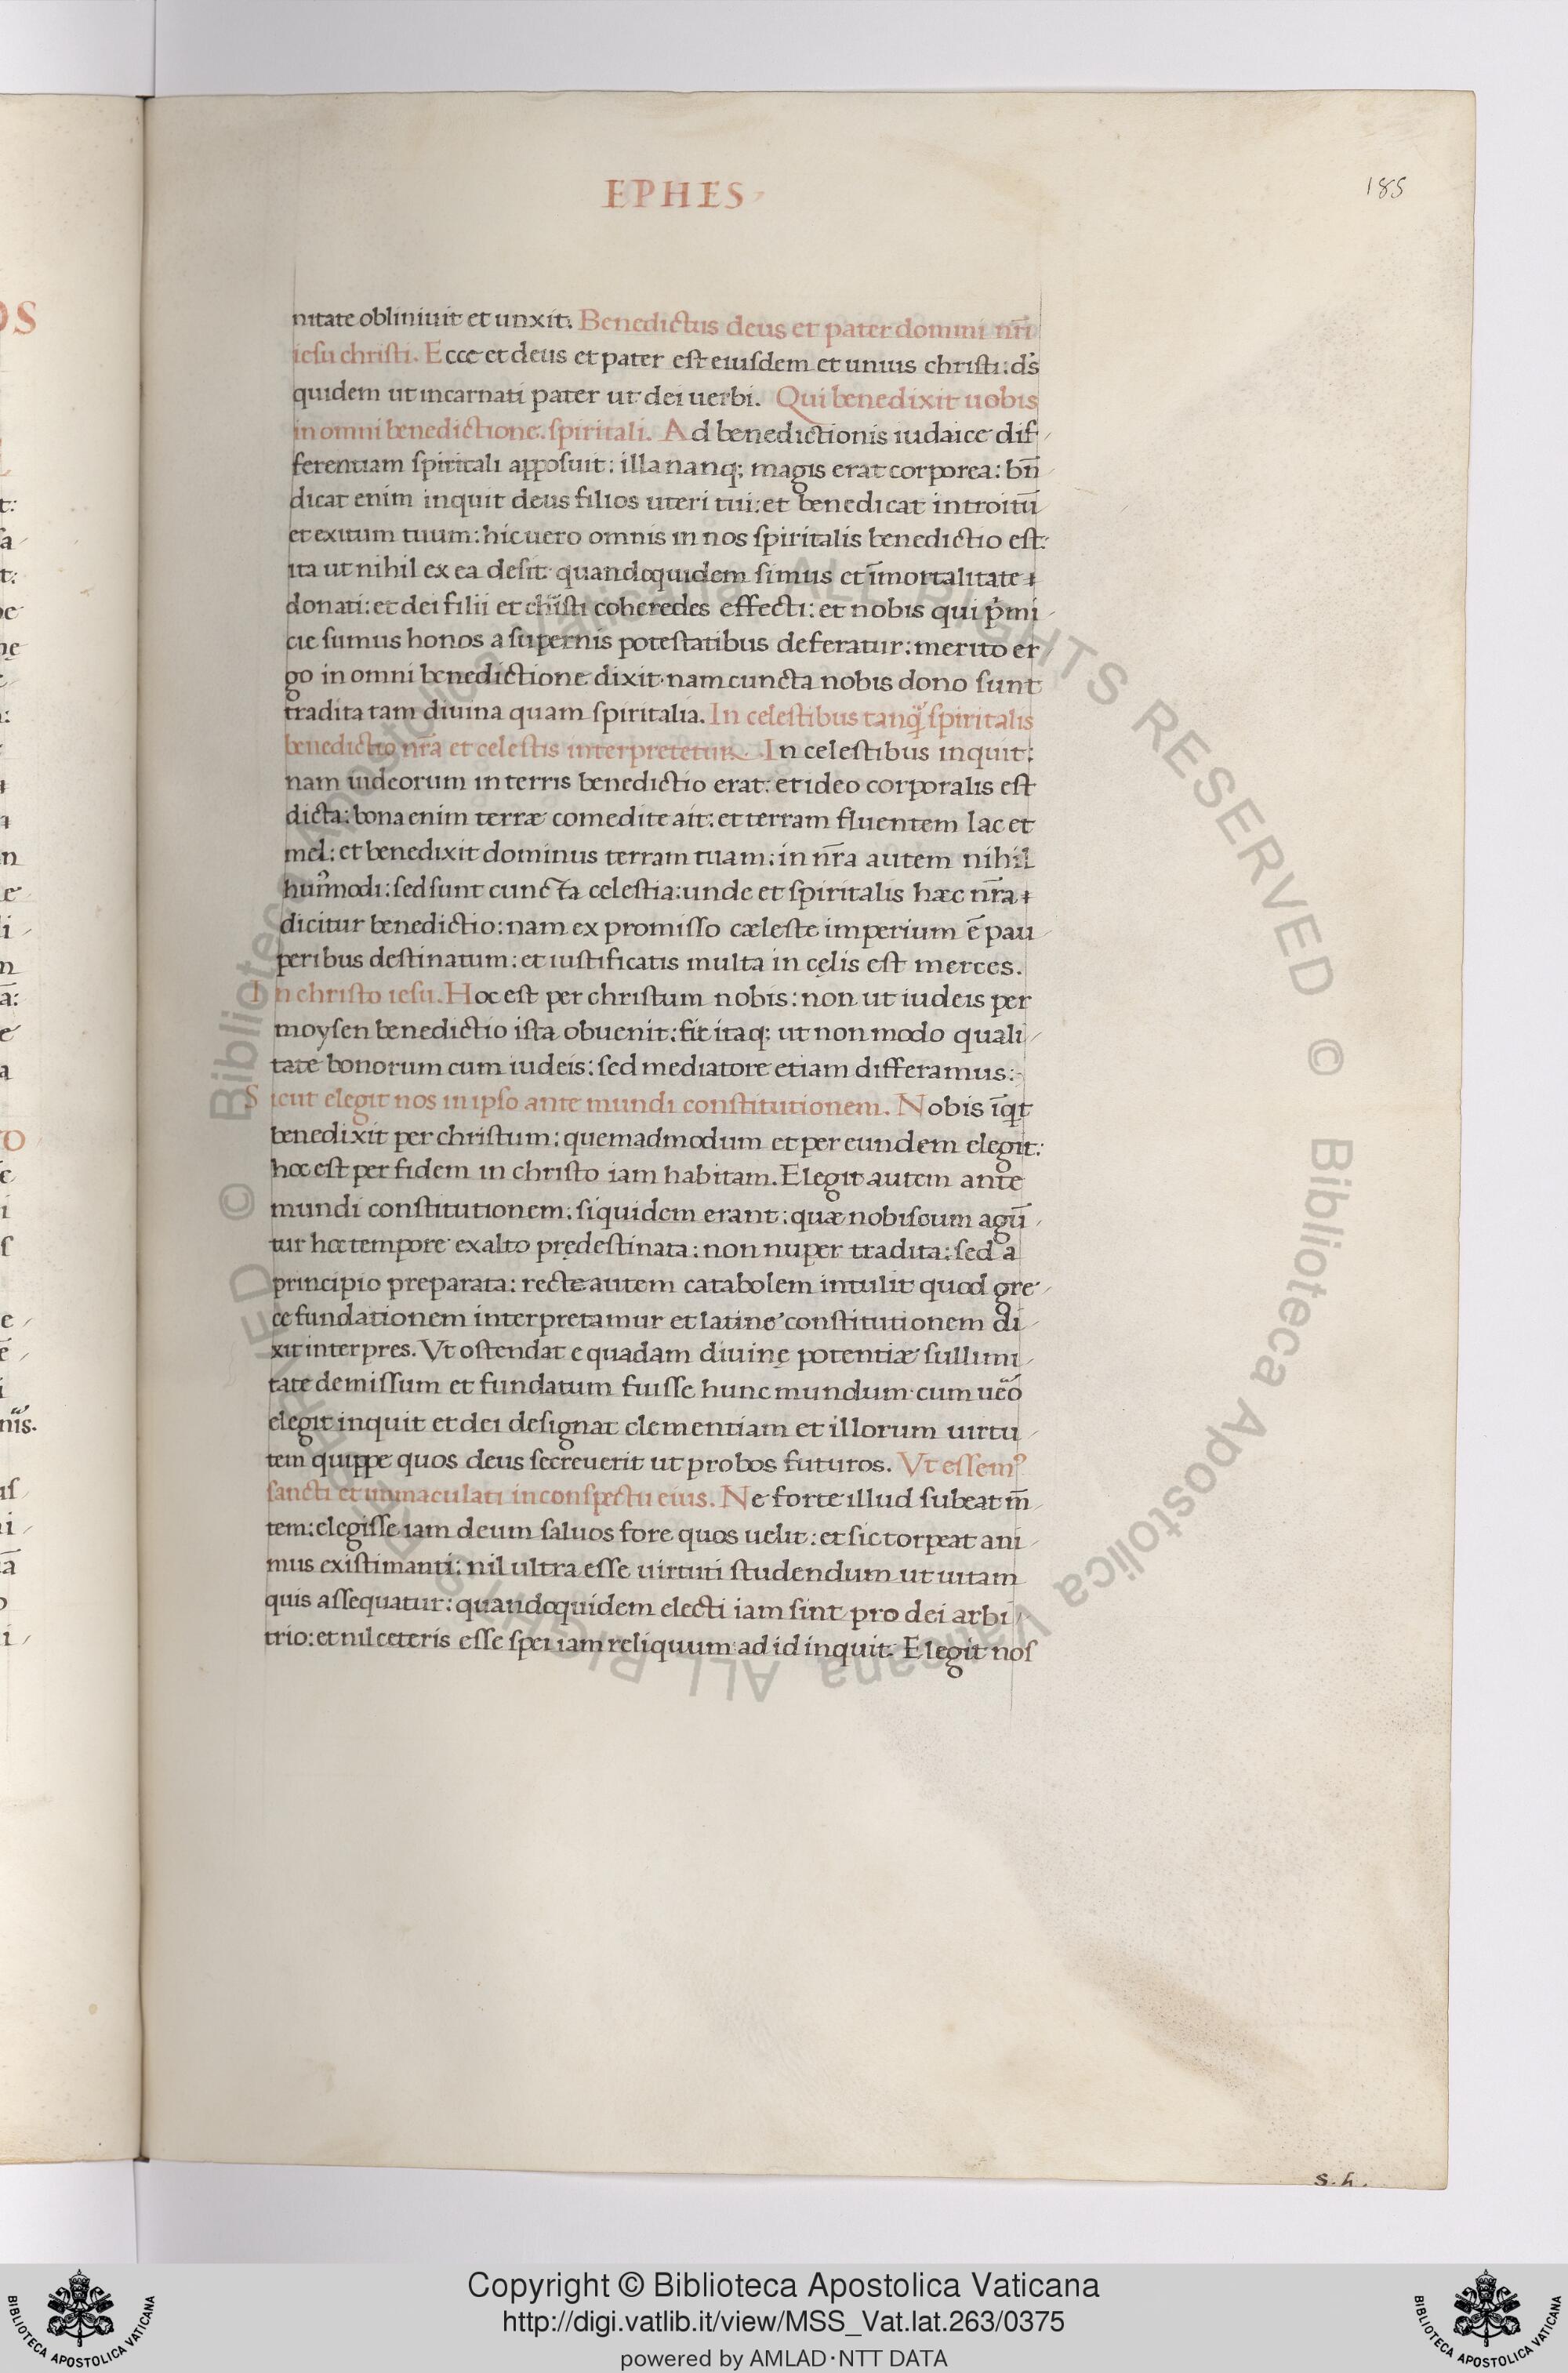 EPHES
185
nitate obliniuit et unxit. Benedictus deus et pater domini nr̄i
iesu christi. Ecce et deus et pater est eiusdem et unius christi: ds̄
quidem ut incarnati pater ut dei uerbi. Qui benedixit uobis
in omni benedictione. spiritali. Ad benedictionis iudaice dif
ferentiam spiritali apposuit: illa nanq; magis erat corporea: bn̄
dicat enim inquit deus filios uteri tui: et benedicat introitū
et exitum tuum: hic uero omnis in nos spiritalis benedictio est:
ita ut nihil ex ea desit quandoquidem simus et īmortalitate
donati: et dei filii et chr̄isti coheredes effecti: et nobis qui p̓mi
cie sumus honos a supernis potestatibus deferatur: merito er
go in omni benedictione dixit. nam cuncta nobis dono sunt
tradita tam diuina quam spiritalia. In celestibus tanq̃ spiritalis
benedictio nr̄a et celestis interpretetur. In celestibus inquit:
nam iudeorum in terris benedictio erat: et ideo corporalis est
dicta: bona enim terræ comedite ait: et terram fluentem lac et
mel: et benedixit dominus terram tuam: in nr̄a autem nihil
huiꝰmodi: sed sunt cuncta celestia: unde et spiritalis hæc nr̄a
dicitur benedictio: nam ex promisso cæleste imperium ē pau
peribus destinatum: et iustificatis multa in cęlis est merces.
In christo iesu. Hoc est per christum nobis: non ut iudeis per
moysen benedictio ista obuenit: fit itaq; ut non modo quali
tate bonorum cum iudeis: sed mediatore etiam differamus:
Sicut elegit nos in ipso ante mundi constitutionem. Nobis īq̓t
benedixit per christum: quemadmodum et per eundem elegit:
hoc est per fidem in christo iam habitam. Elegit autem ante
mundi constitutionem. siquidem erant: quæ nobiscum agū
tur hoc tempore exalto prędestinata: non nuper tradita: sed a
principio preparata: recte autem catabolem intulit quod gre
ce fundationem interpretamur et latine constitutionem di
xit interpres. Vt ostendat e quadam diuinę potentiæ sullimi
tate demissum et fundatum fuisse hunc mundum. cum uēo
elegit inquit et dei designat clementiam et illorum uirtu
tem quippe quos deus secreuerit ut probos futuros. Vt essemꝰ
sancti et immaculati in conspectu eius. Ne forte illud subeat m̄
tem: elegisse iam deum saluos fore quos uelit: et sic torpeat ani
mus existimanti: nil ultra esse uirtuti studendum ut uitam
quis assequatur: quandoquidem electi iam sint pro dei arbi
trio: et nil ceteris esse spei iam reliquum: ad id inquit. Elegit nos
s. h.
© Biblioteca Apostolica Vaticana ALL RIGHTS RESERVED
© Biblioteca Apostolica Vaticana ALL RIGHTS RESERVED
Copyright © Biblioteca Apostolica Vaticana
http://digi.vatlib.it/view/MSS_Vat.lat.263/0375
powered by AMLAD·NTT DATA
BIBLIOTECA APOSTOLICA VATICANA
BIBLIOTECA APOSTOLICA VATICANA